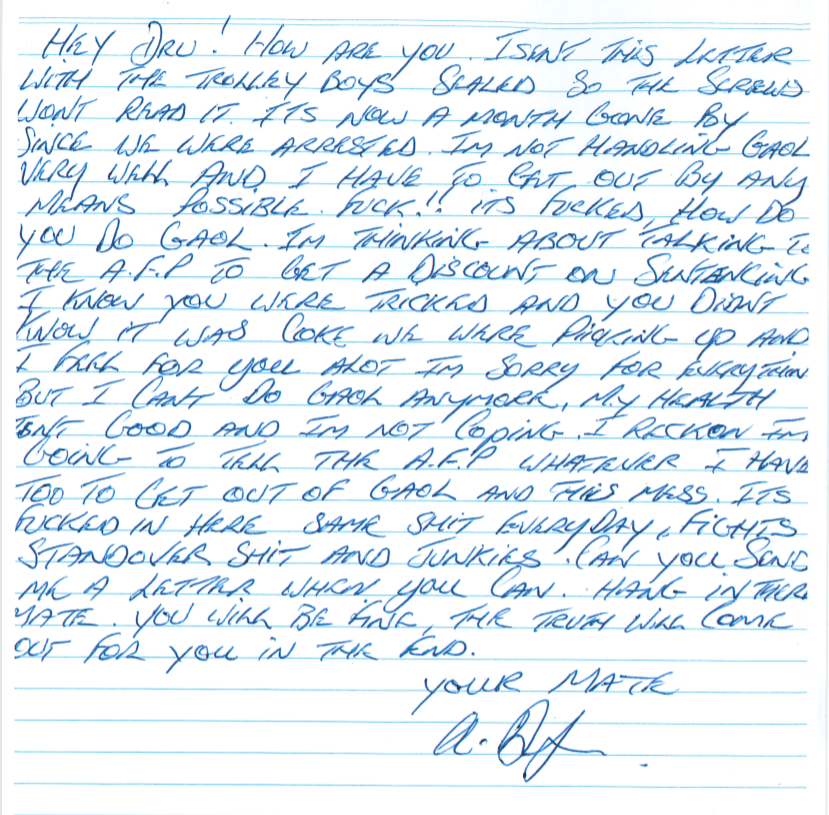 HEY DRU! HOW ARE YOU. I SENT THIS LETTER
WITH THE TROLLEY BOYS SEALED SO THE SCREWS
WONT READ IT. ITS NOW A MONTH GONE BY
SINCE WE WERE ARRESTED. IM NOT HANDLING GAOL
VERY WELL AND I HAVE TO GET OUT BY ANY
MEANS POSSIBLE. FUCK!! ITS FUCKED, HOW DO
YOU DO GAOL. IM THINKING ABOUT TALKING TO
THE A.F.P TO GET A DISCOUNT ON SENTANCING
I KNOW YOU WERE TRICKED AND YOU DIDNT
KNOW IT WAS COKE WE WERE PICKING UP AND
I FEEL FOR YOU ALOT IM SORRY FOR EVERYTHIN
BUT I CANT DO GAOL ANYMORE, MY HEALTH
ISNT GOOD AND IM NOT COPING. I RECKON IM
GOING TO TELL THE A.F.P WHATEVER I HAVE
TOO TO GET OUT OF GAOL AND THIS MESS. ITS
FUCKED IN HERE SAME SHIT EVERYDAY, FIGHTS
STANDOVER SHIT AND JUNKIES. CAN YOU SEND
ME A LETTER WHEN YOU CAN. HANG IN THERE
MATE. YOU WILL BE FINE, THE TRUTH WILL COME
OUT FOR YOU IN THE END.
YOUR MATE
A.